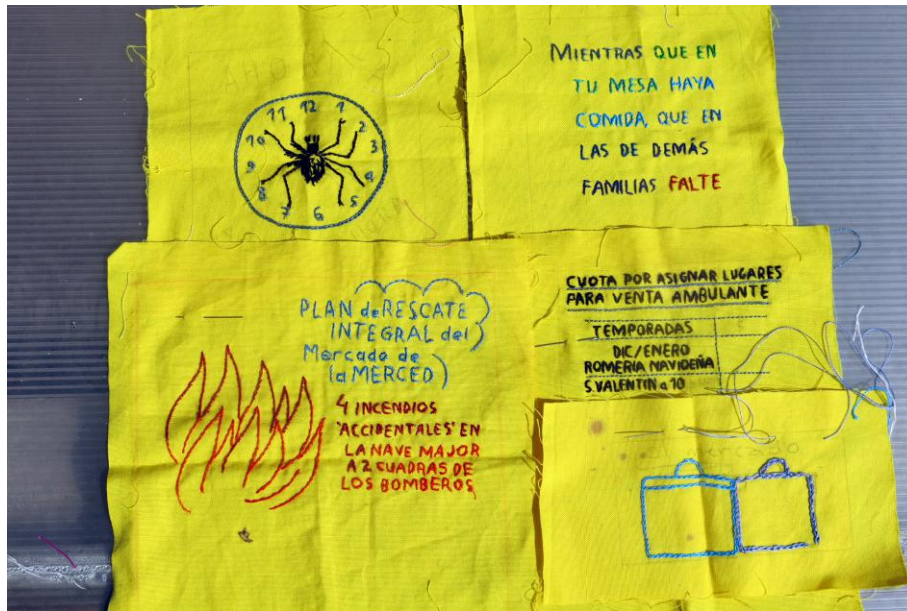 11 12 1
10 2
9 3
8 4
7 6 5
MIENTRAS QUE EN
TU MESA HAYA
COMIDA, QUE EN
LAS DE DEMÁS
FAMILIAS FALTE
PLAN de RESCATE
INTEGRAL del
Mercado de
la MERCED
4 INCENDIOS
'ACCIDENTALES' EN
LA NAVE MAJOR
A 2 CUADRAS DE
LOS BOMBEROS
CUOTA POR ASIGNAR LUGARES
PARA VENTA AMBULANTE
TEMPORADAS
DIC/ENERO
ROMERIA NAVIDEÑA
S.VALENTIN a 10